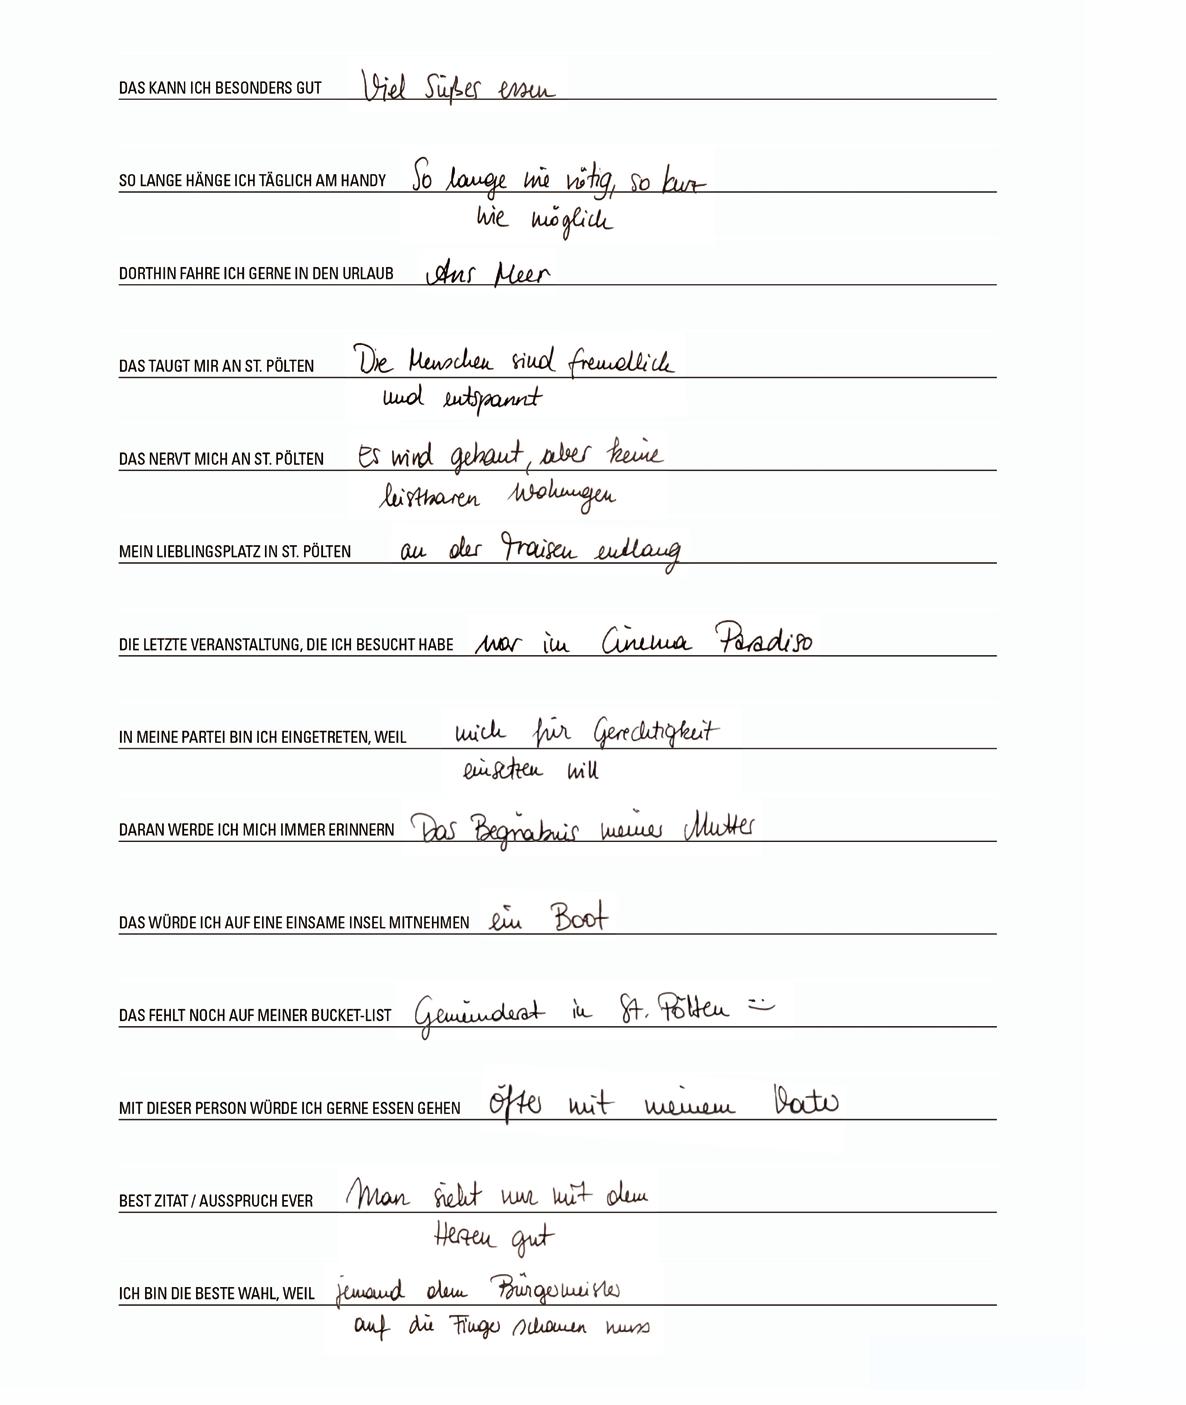 DAS KANN ICH BESONDERS GUT Viel Süßes essen
SO LANGE HÄNGE ICH TÄGLICH AM HANDY So lange wie nötig, so kurz
wie möglich
DORTHIN FAHRE ICH GERNE IN DEN URLAUB Ans Meer
DAS TAUGT MIR AN ST. PÖLTEN Die Menschen sind freundlich
und entspannt
DAS NERVT MICH AN ST. PÖLTEN Es wird gebaut, aber keine
leistbaren Wohnungen
MEIN LIEBLINGSPLATZ IN ST. PÖLTEN an der Traisen entlang
DIE LETZTE VERANSTALTUNG, DIE ICH BESUCHT HABE war im Cinema Paradiso
IN MEINE PARTEI BIN ICH EINGETRETEN, WEIL mich für Gerechtigkeit
einsetzen will
DARAN WERDE ICH MICH IMMER ERINNERN Das Begräbnis meiner Mutter
DAS WÜRDE ICH AUF EINE EINSAME INSEL MITNEHMEN ein Boot
DAS FEHLT NOCH AUF MEINER BUCKET-LIST Gemeinderat in St. Pölten :)
MIT DIESER PERSON WÜRDE ICH GERNE ESSEN GEHEN öfter mit meinem Vater
BEST ZITAT / AUSSPRUCH EVER Man sieht nur mit dem
Herzen gut
ICH BIN DIE BESTE WAHL, WEIL jemand dem Bürgermeister
auf die Finger schauen muss